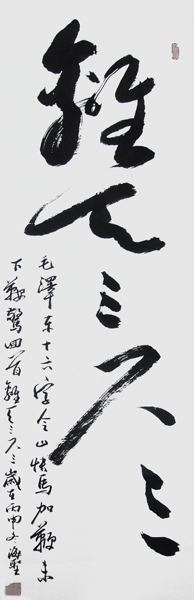 離天三尺三
毛澤东十六字令山快馬加鞭未
下鞍驚回首離天三尺三歲在丙申冬海